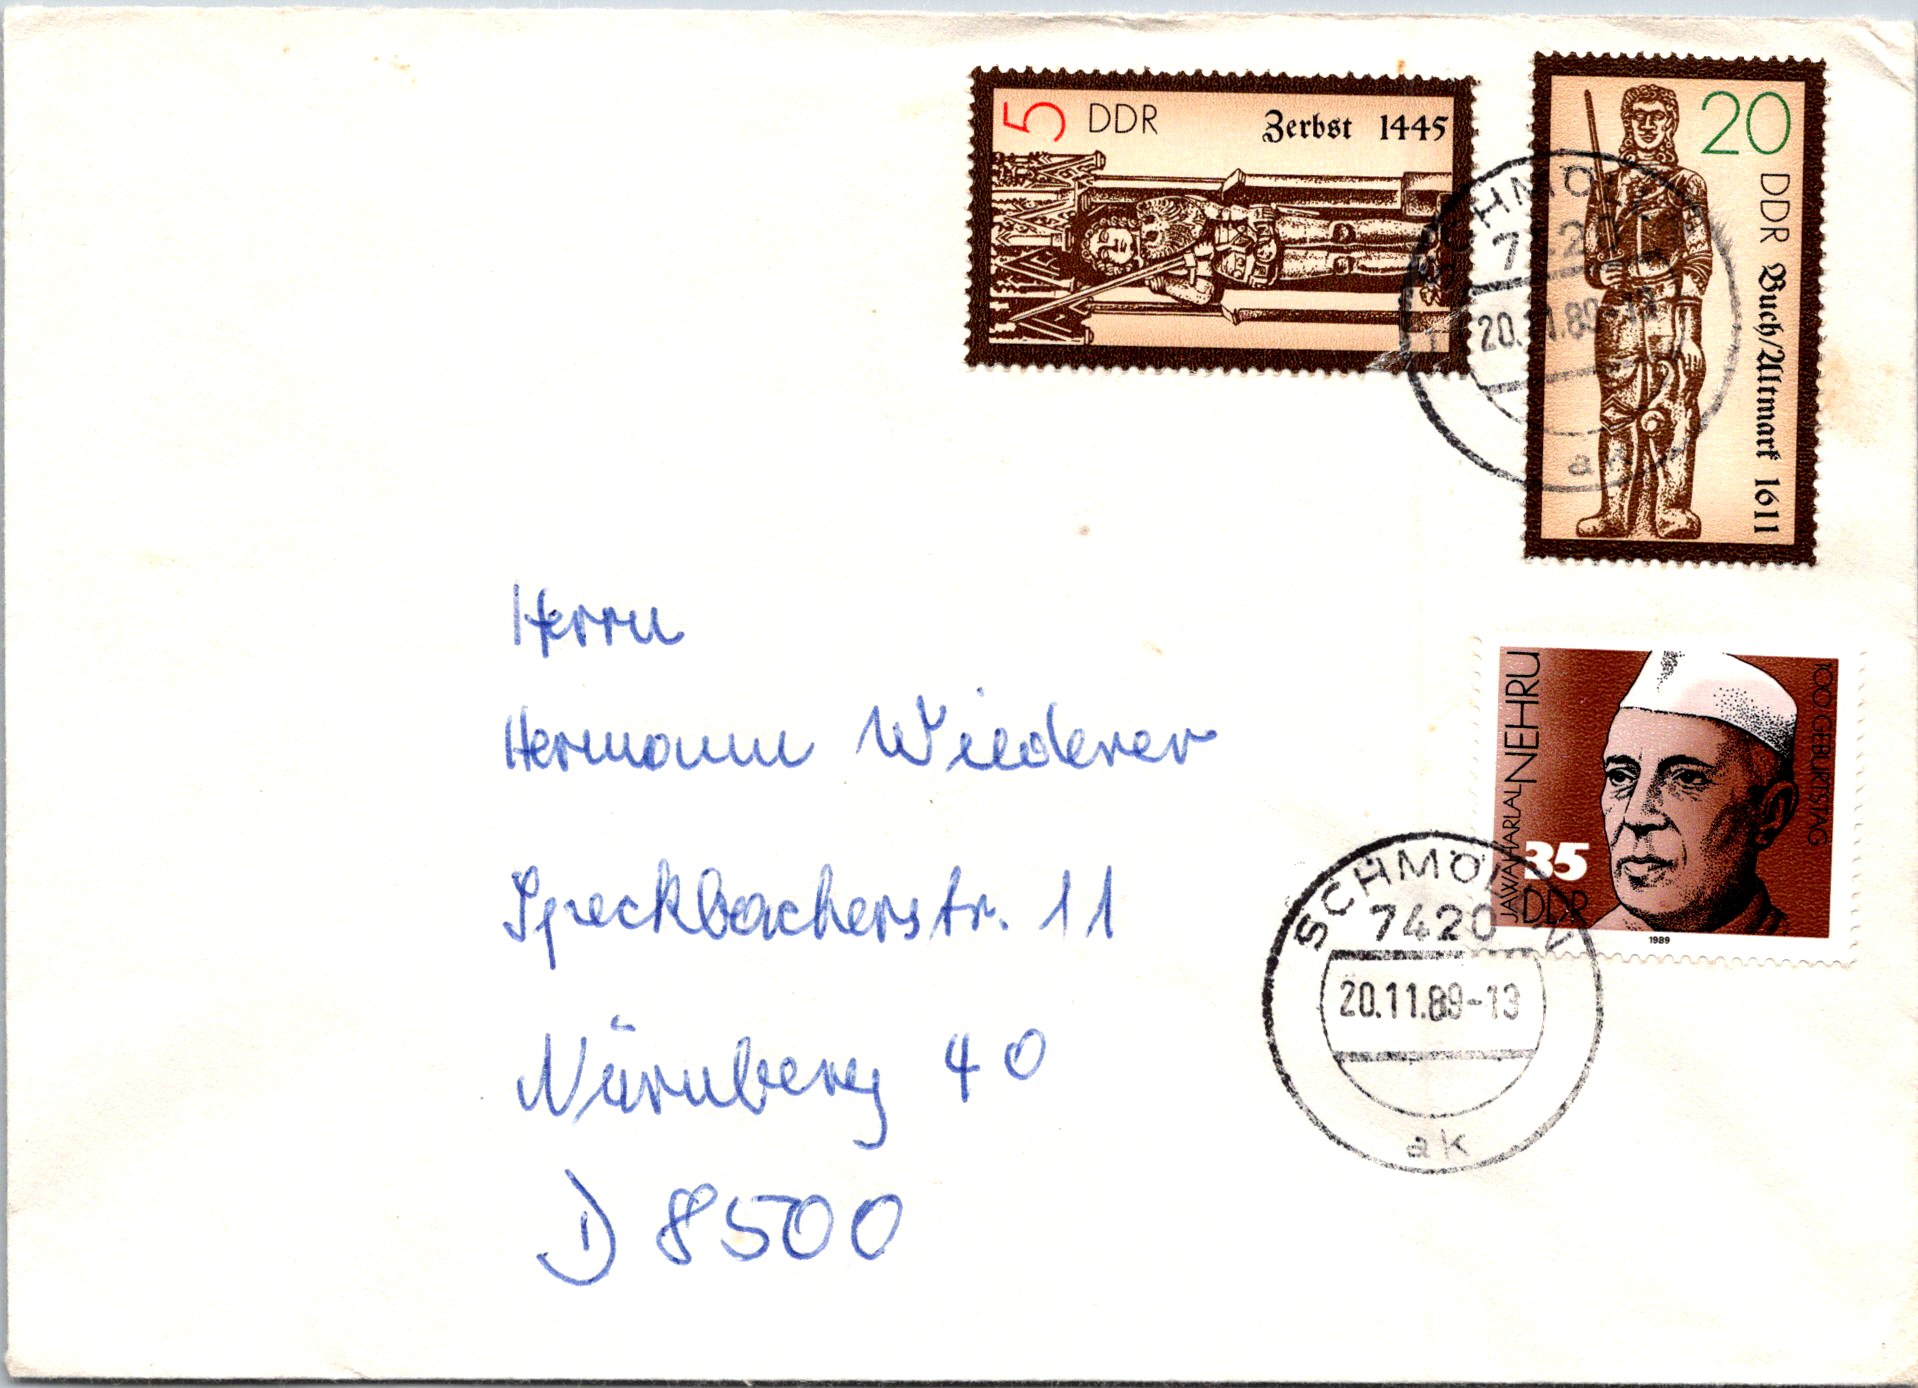 5 DDR Zerbst 1445
20 DDR Buch/Altmark 1611
SCHMÖLLN
7420
20.11.89-13
ak
Herrn
Hermann Wiederer
Speckbacherstr. 11
Nürnberg 40
D 8500
JAWAHARLAL NEHRU
100. GEBURTSTAG
35
DDR
1989
SCHMÖLLN
7420
20.11.89-13
ak